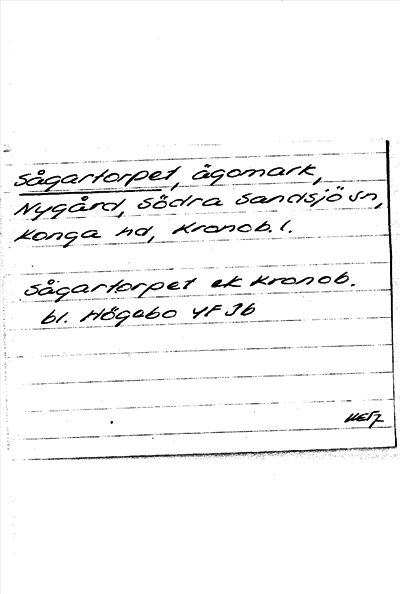 Sågartorpet, ägomark,
Nygård, Södra Sandsjö sn,
Konga hd, Kronob. l.
Sågartorpet ek Kronob.
bl. Högebo 4F Jb